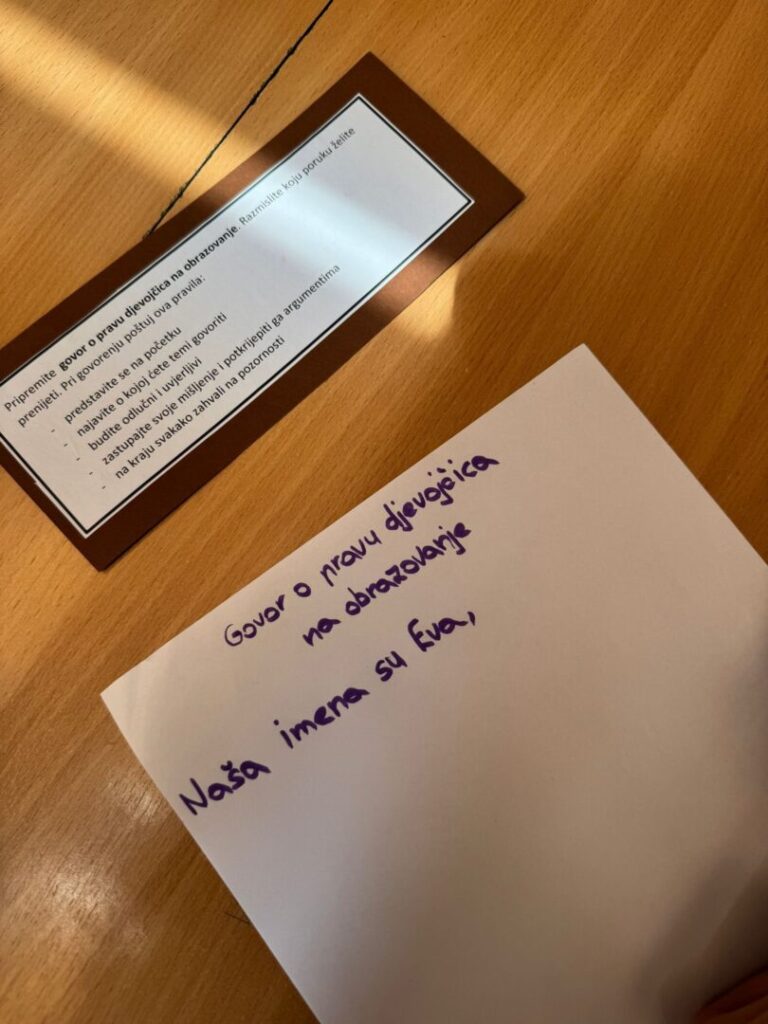 Pripremite govor o pravu djevojčica na obrazovanje. Razmislite koju poruku želite
prenijeti. Pri govorenju poštuj ova pravila:
- predstavite se na početku
- najavite o kojoj ćete temi govoriti
- budite odlučni i uvjerljivi
- zastupajte svoje mišljenje i potkrijepiti ga argumentima
- na kraju svakako zahvali na pozornosti
Govor o pravu djevojčica
na obrazovanje
Naša imena su Eva,